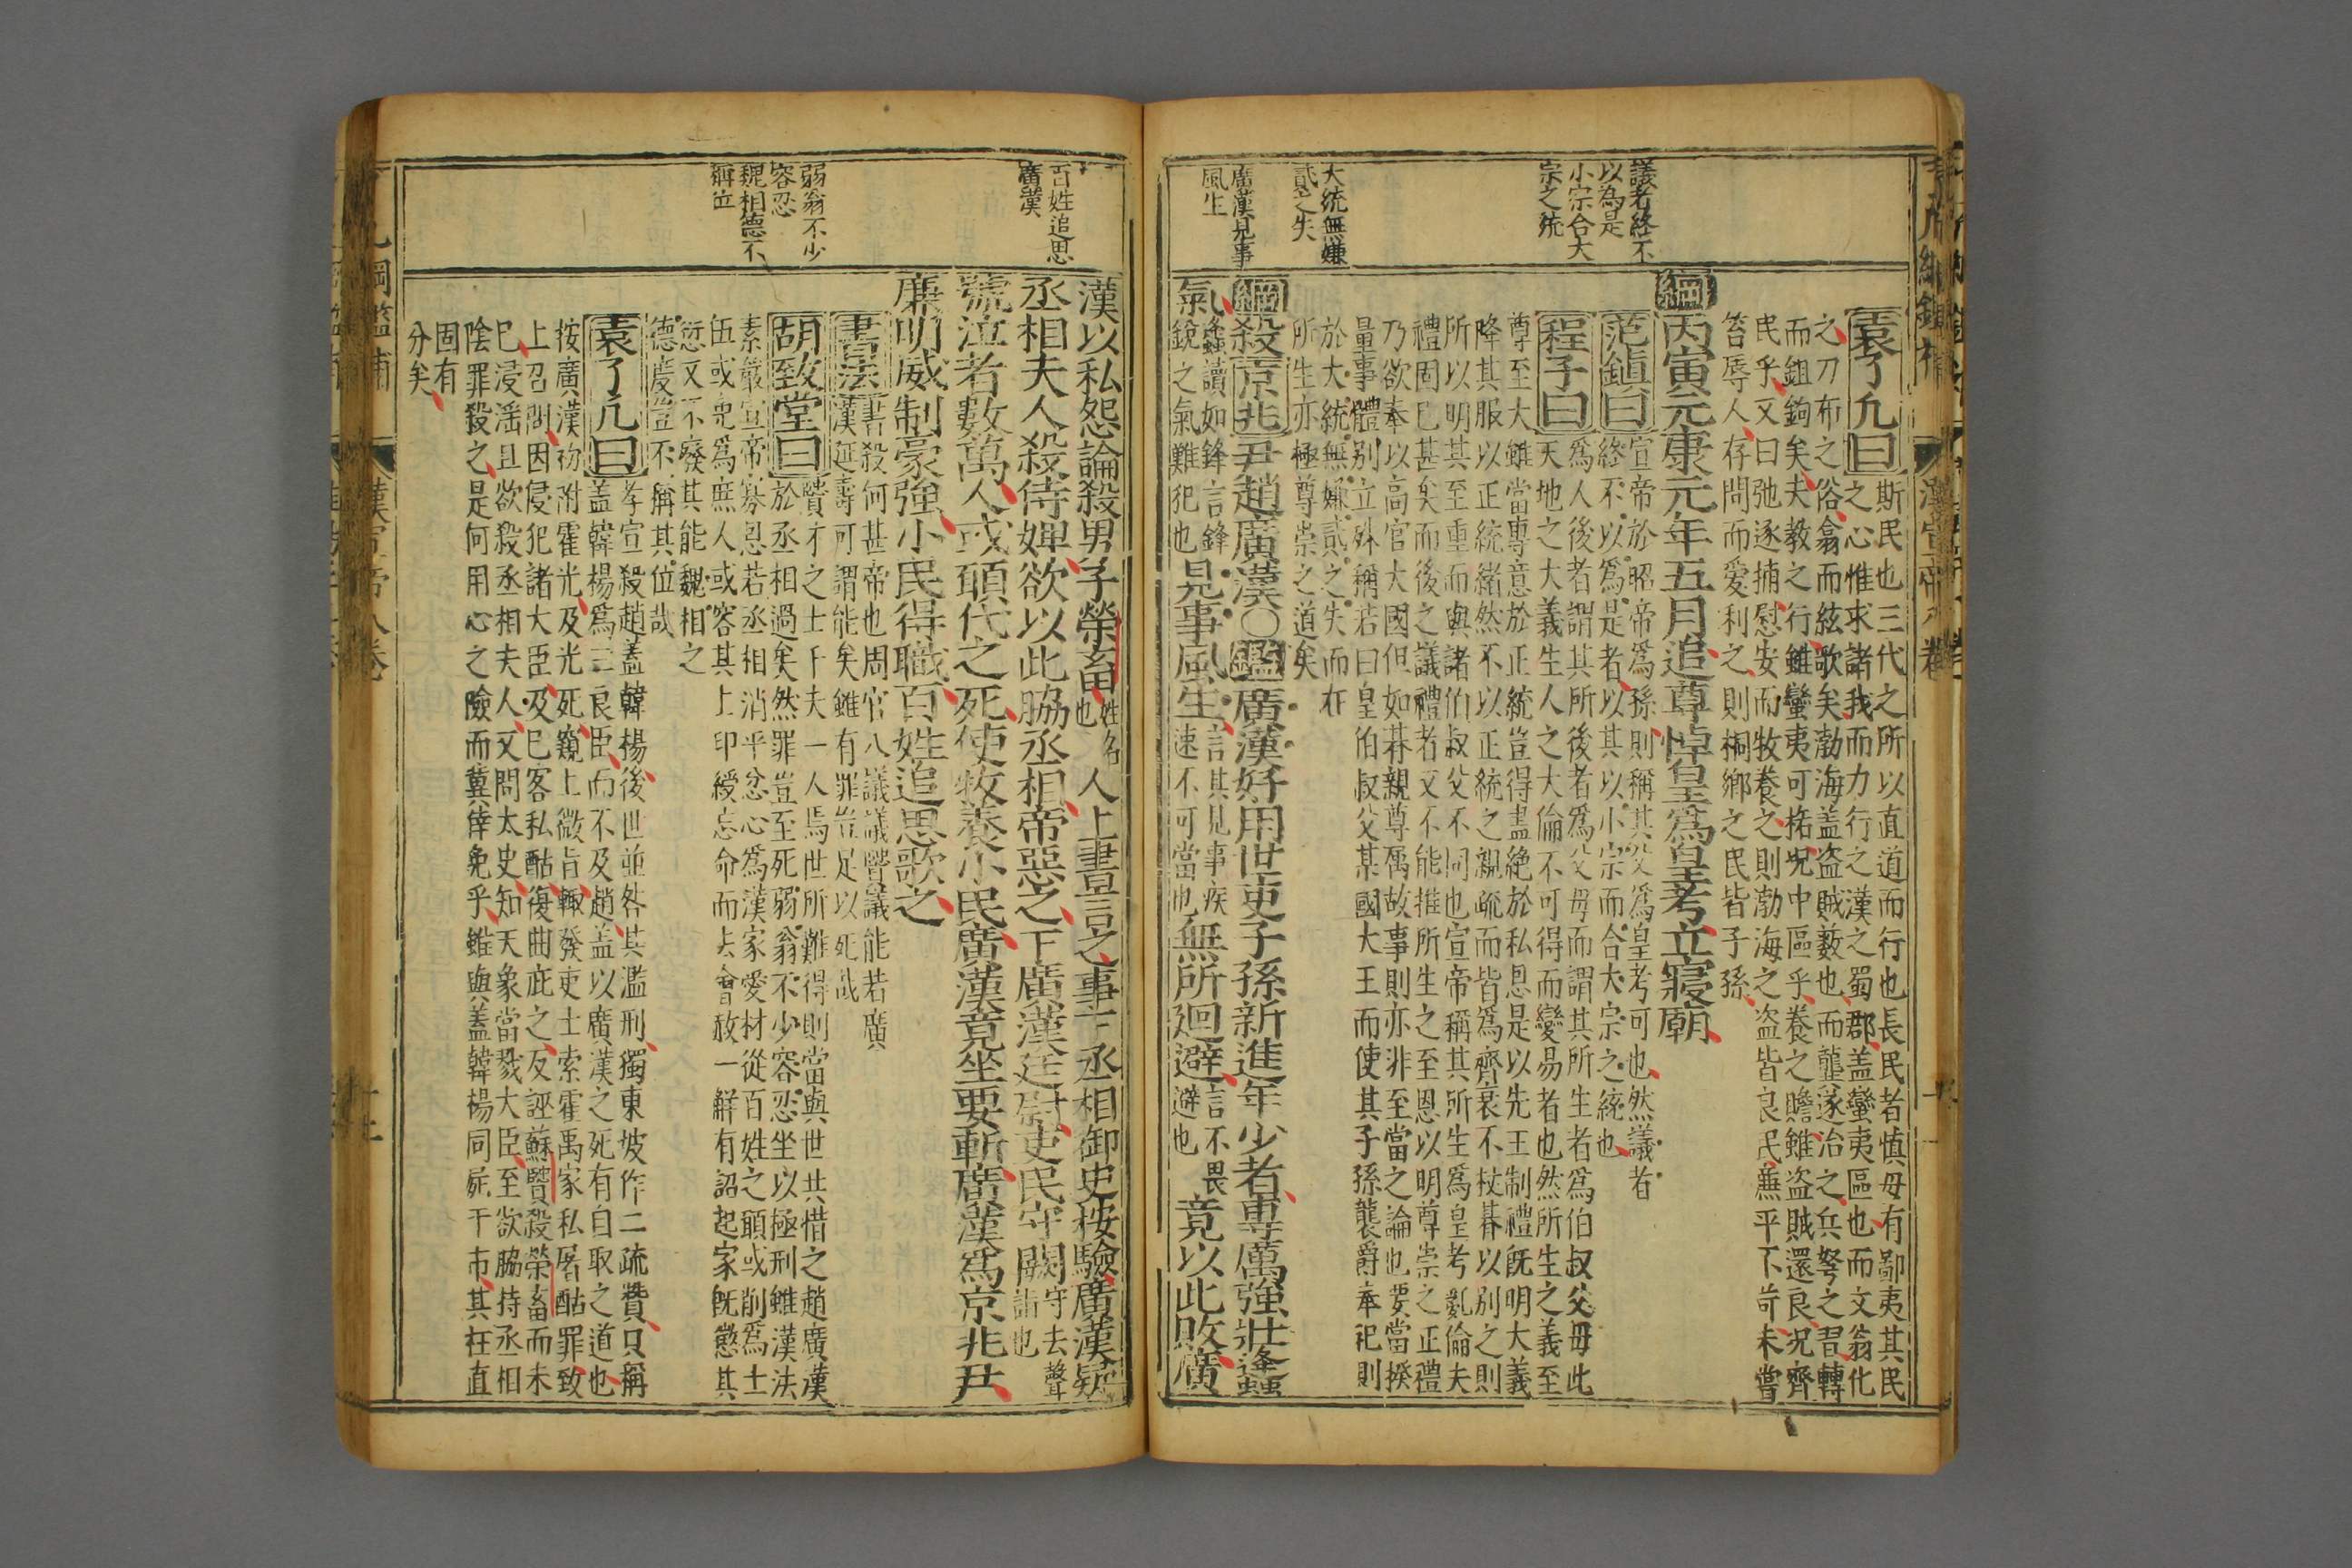 議者終不
以為是
小宗合大
宗之統
大統無嫌
貳之失
廣漢見事
風生
袁了凡曰
斯民也三代之所以直道而行也長民者慎毋有鄙夷其民
之心惟求諸我而力行之漢之蜀郡蓋蠻夷區也而文翁化
之刀布之俗翕而絃歌矣渤海盖盗賊藪也而龔遂治之兵弩之習轉
而鉏鉤矣夫教之行雖蠻夷可格况中區乎養之贍雖盗賊還良况齊
民乎又曰弛逐捕慰安而牧養之則渤海之盗皆良民無平不苛未嘗
笞辱人存問而愛利之則桐鄉之民皆子孫
綱丙寅元康元年五月追尊悼皇爲皇考立寢廟
范鎮曰宣帝於昭帝爲孫則稱其父爲皇考可也然議者
終不以爲是者以其以小宗而合大宗之統也
程子曰爲人後者謂其所後者爲父母而謂其所生者爲伯叔父母此
天地之大義生人之大倫不可得而變易者也然所生之義至
尊至大雖當專意於正統豈得盡絶於私恩是以先王制禮既明大義
降其服以正統緒然不以正統之親疏而皆爲齊衰不杖朞以别之則
所以明其至重而與諸伯叔父不同也宣帝稱其所生爲皇考亂倫夫
禮固已甚矣而後之議禮者又不能推所生之至恩以明尊崇之正禮
乃欲奉以高官大國但如朞親尊屬故事則亦非至當之論也要當揆
量事體别立殊稱若曰皇伯叔父某國大王而使其子孫襲爵奉祀則
於大統無嫌貳之失而在
所生亦極尊崇之道矣
綱殺京兆尹趙廣漢○鑑廣漢好用世吏子孫新進年少者專厲強壯蠭
氣蠭讀如鋒言鋒
銳之氣難犯也見事風生言其見事疾
速不可當也無所迴避言不畏
避也竟以此敗廣
百姓追思
廣漢
弱翁不少
容忍
魏相德不
稱位
漢以私怨論殺男子榮畜姓名
也人上書言之事下丞相御史按驗廣漢疑
丞相夫人殺侍婢欲以此脇丞相帝惡之下廣漢廷尉吏民守闕守去聲
詣也
號泣者數萬人或願代之死使牧養小民廣漢竟坐要斬廣漢爲京兆尹
廉明威制豪強小民得職百姓追思歌之
書法書殺何甚帝也周官八議議賢議能若廣
漢延壽可謂能矣雖有罪豈足以死哉
胡致堂曰賢才之士千夫一人焉世所難得則當與世共惜之趙廣漢
於丞相過矣然罪豈至死弱翁不少容忍坐以極刑雖漢法
素嚴宣帝寡恩若丞相消平忿心爲漢家愛材從百姓之願或削爲士
伍或免爲庶人或容其上印綬忘命而去會赦一觧有詔起家既懲其
愆又不廢其能魏相之
德度豈不稱其位哉
袁了凡曰孝宣殺趙蓋韓楊後世並咎其濫刑獨東坡作二疏贊只稱
盖韓楊爲三良臣而不及趙盖以廣漢之死有自取之道也
按廣漢初附霍光及光死窺上微旨輙發吏士索霍禹家私屠酤罪致
上召問因侵犯諸大臣及已客私酤復曲庇之反誣蘇賢殺榮畜而未
已浸淫且欲殺丞相夫人又問太史知天象當戮大臣至欲脇持丞相
陰罪殺之是何用心之險而冀倖免乎雖與蓋韓楊同屍干市其枉直
固有
分矣